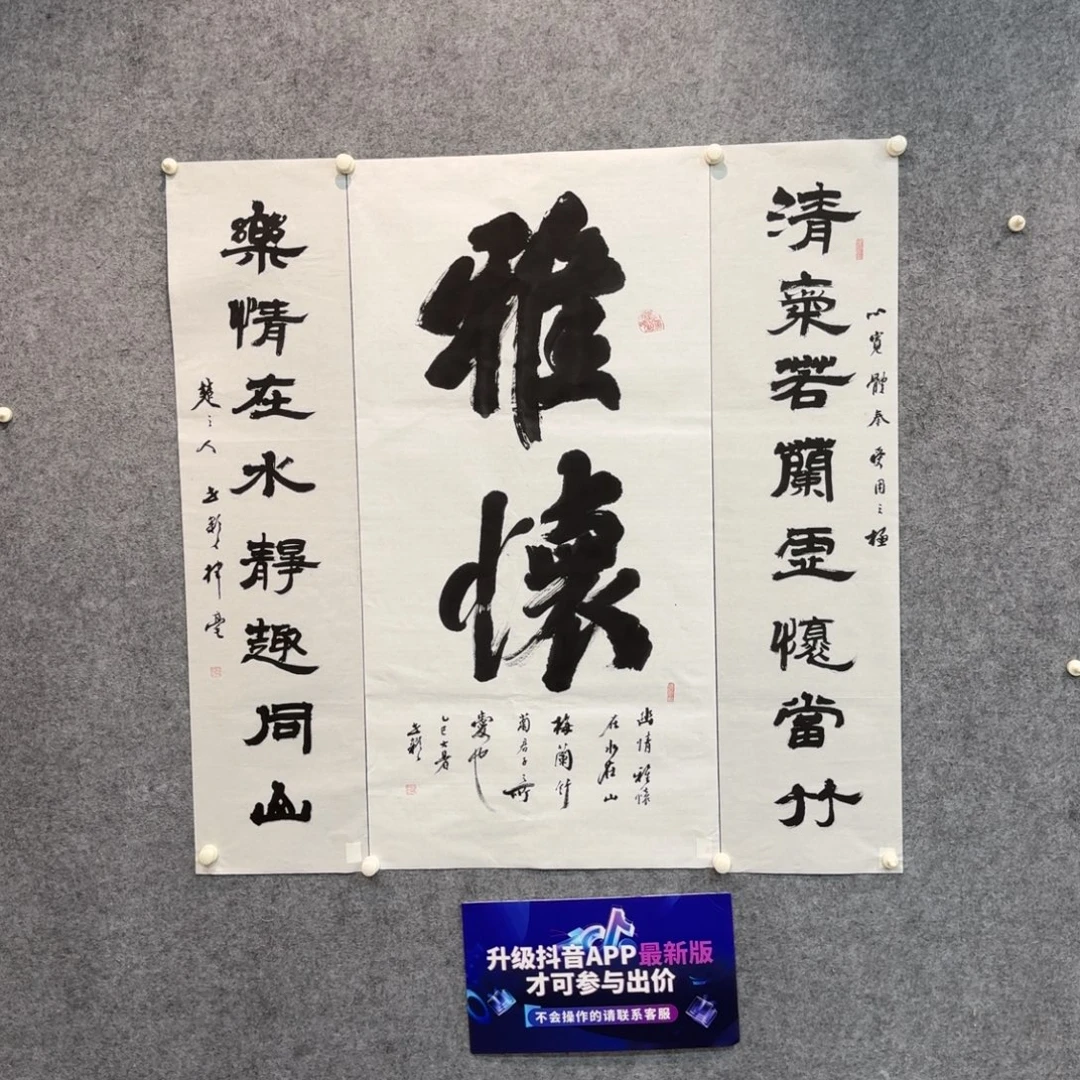 清氣若蘭虛懷當竹
心寬體泰 之極
雅懷
幽情雅懷
在水在山
梅蘭竹
菊君子之所
愛也
乙巳大暑
樂情在水靜趣同山
楚之人 揮毫
升级抖音APP最新版
才可参与出价
不会操作的请联系客服